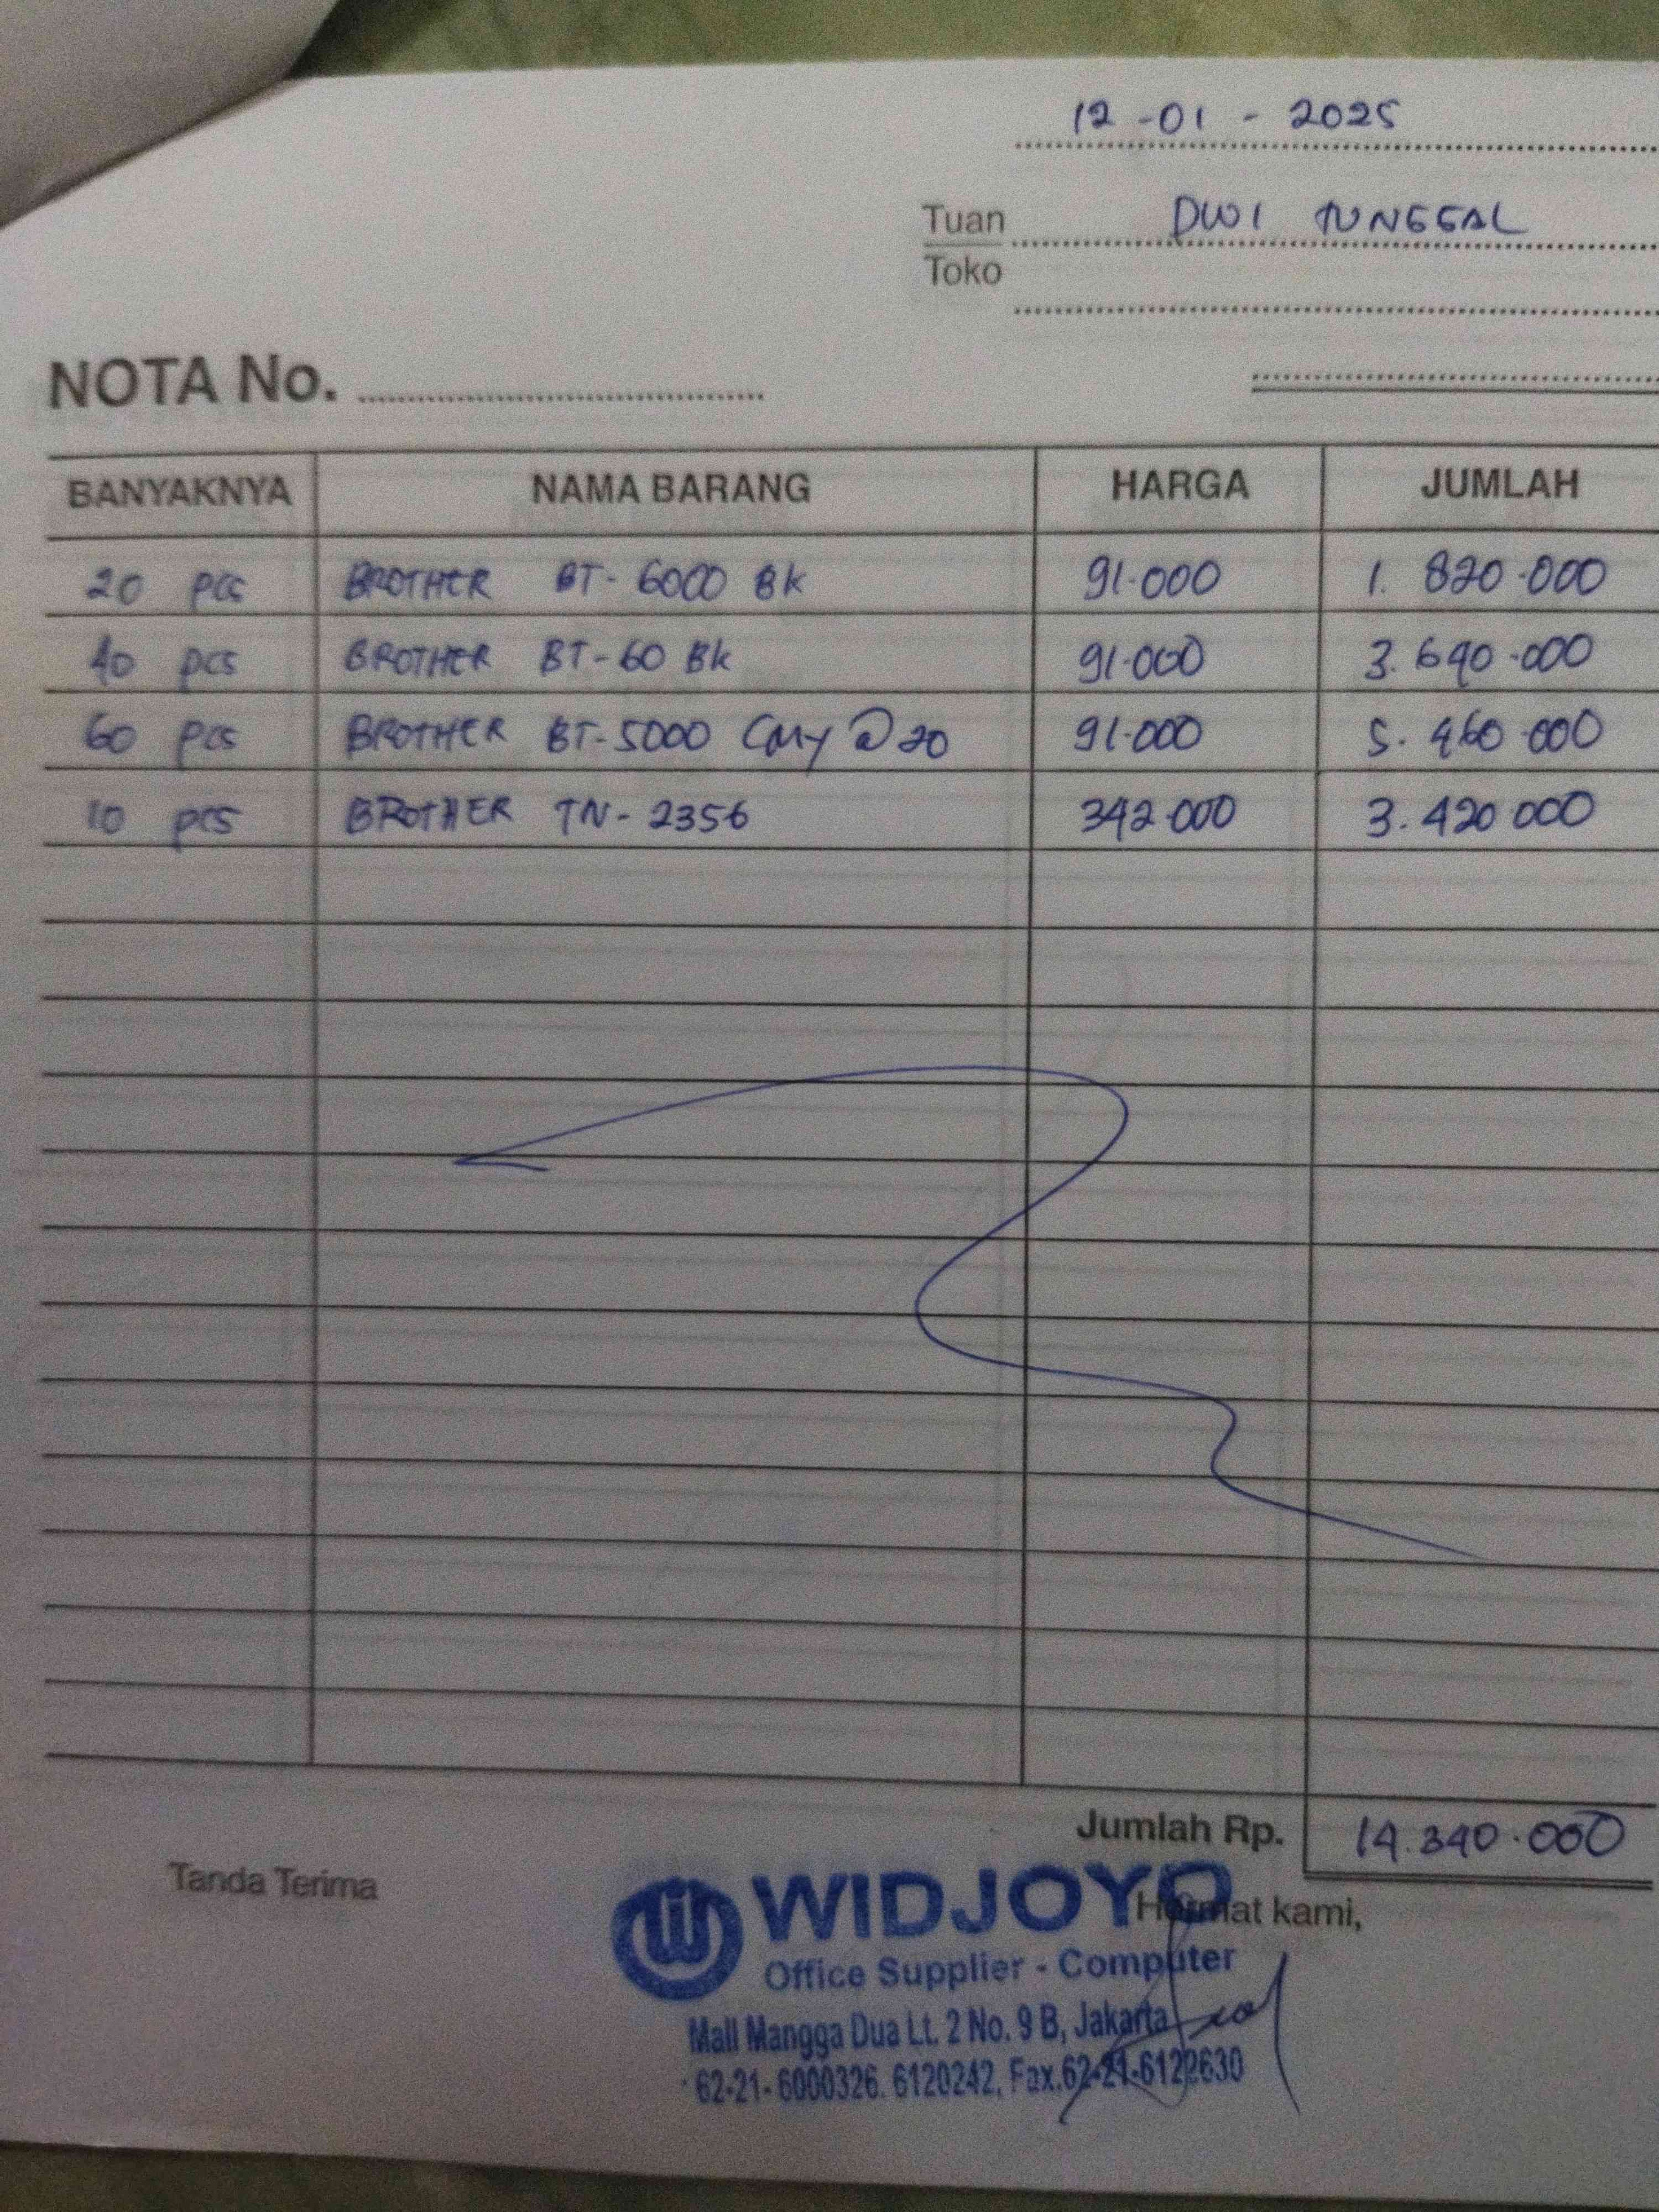 12 - 01 - 2025
Tuan DWI TUNGGAL
Toko
NOTA No.
BANYAKNYA NAMA BARANG HARGA JUMLAH
20 pcs BROTHER BT- 6000 BK 91.000 1. 820.000
40 pcs BROTHER BT-60 BK 91.000 3. 640.000
60 pcs BROTHER BT-5000 CMY @ 20 91.000 5. 460.000
10 pcs BROTHER TN- 2356 342.000 3. 420 000
Jumlah Rp. 14.340.000
Tanda Terima
Hormat kami,
WIDJOYO
Office Supplier - Computer
Mall Mangga Dua Lt. 2 No. 9 B, Jakarta
62-21- 6000326. 6120242, Fax.62-21-6122630